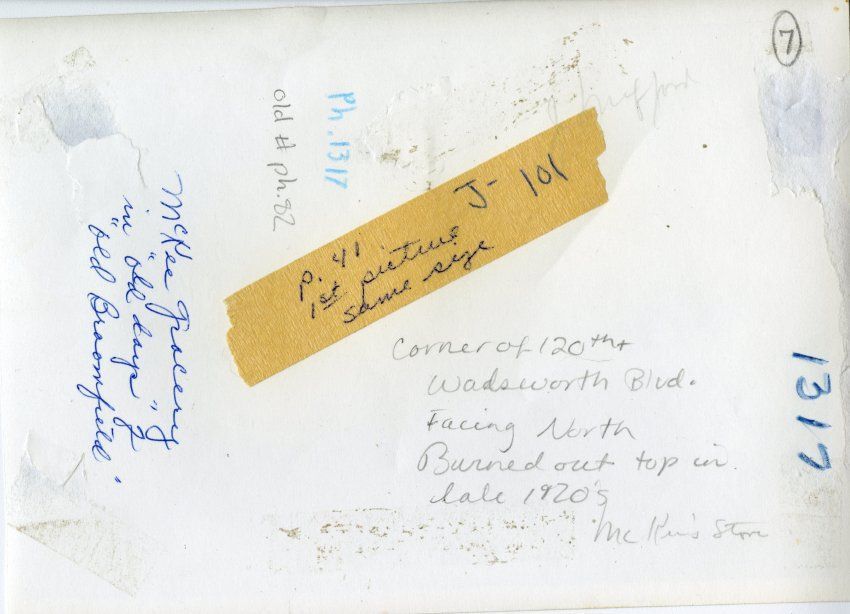 7
Ph. 1317
old # ph. 82
J- 101
p. 41
1st picture
same size
McKee Grocery
in "old days" of
"old Broomfield"
Corner of 120th +
Wadsworth Blvd.
Facing North
Burned out top in
late 1920's
McKee's Store
1317